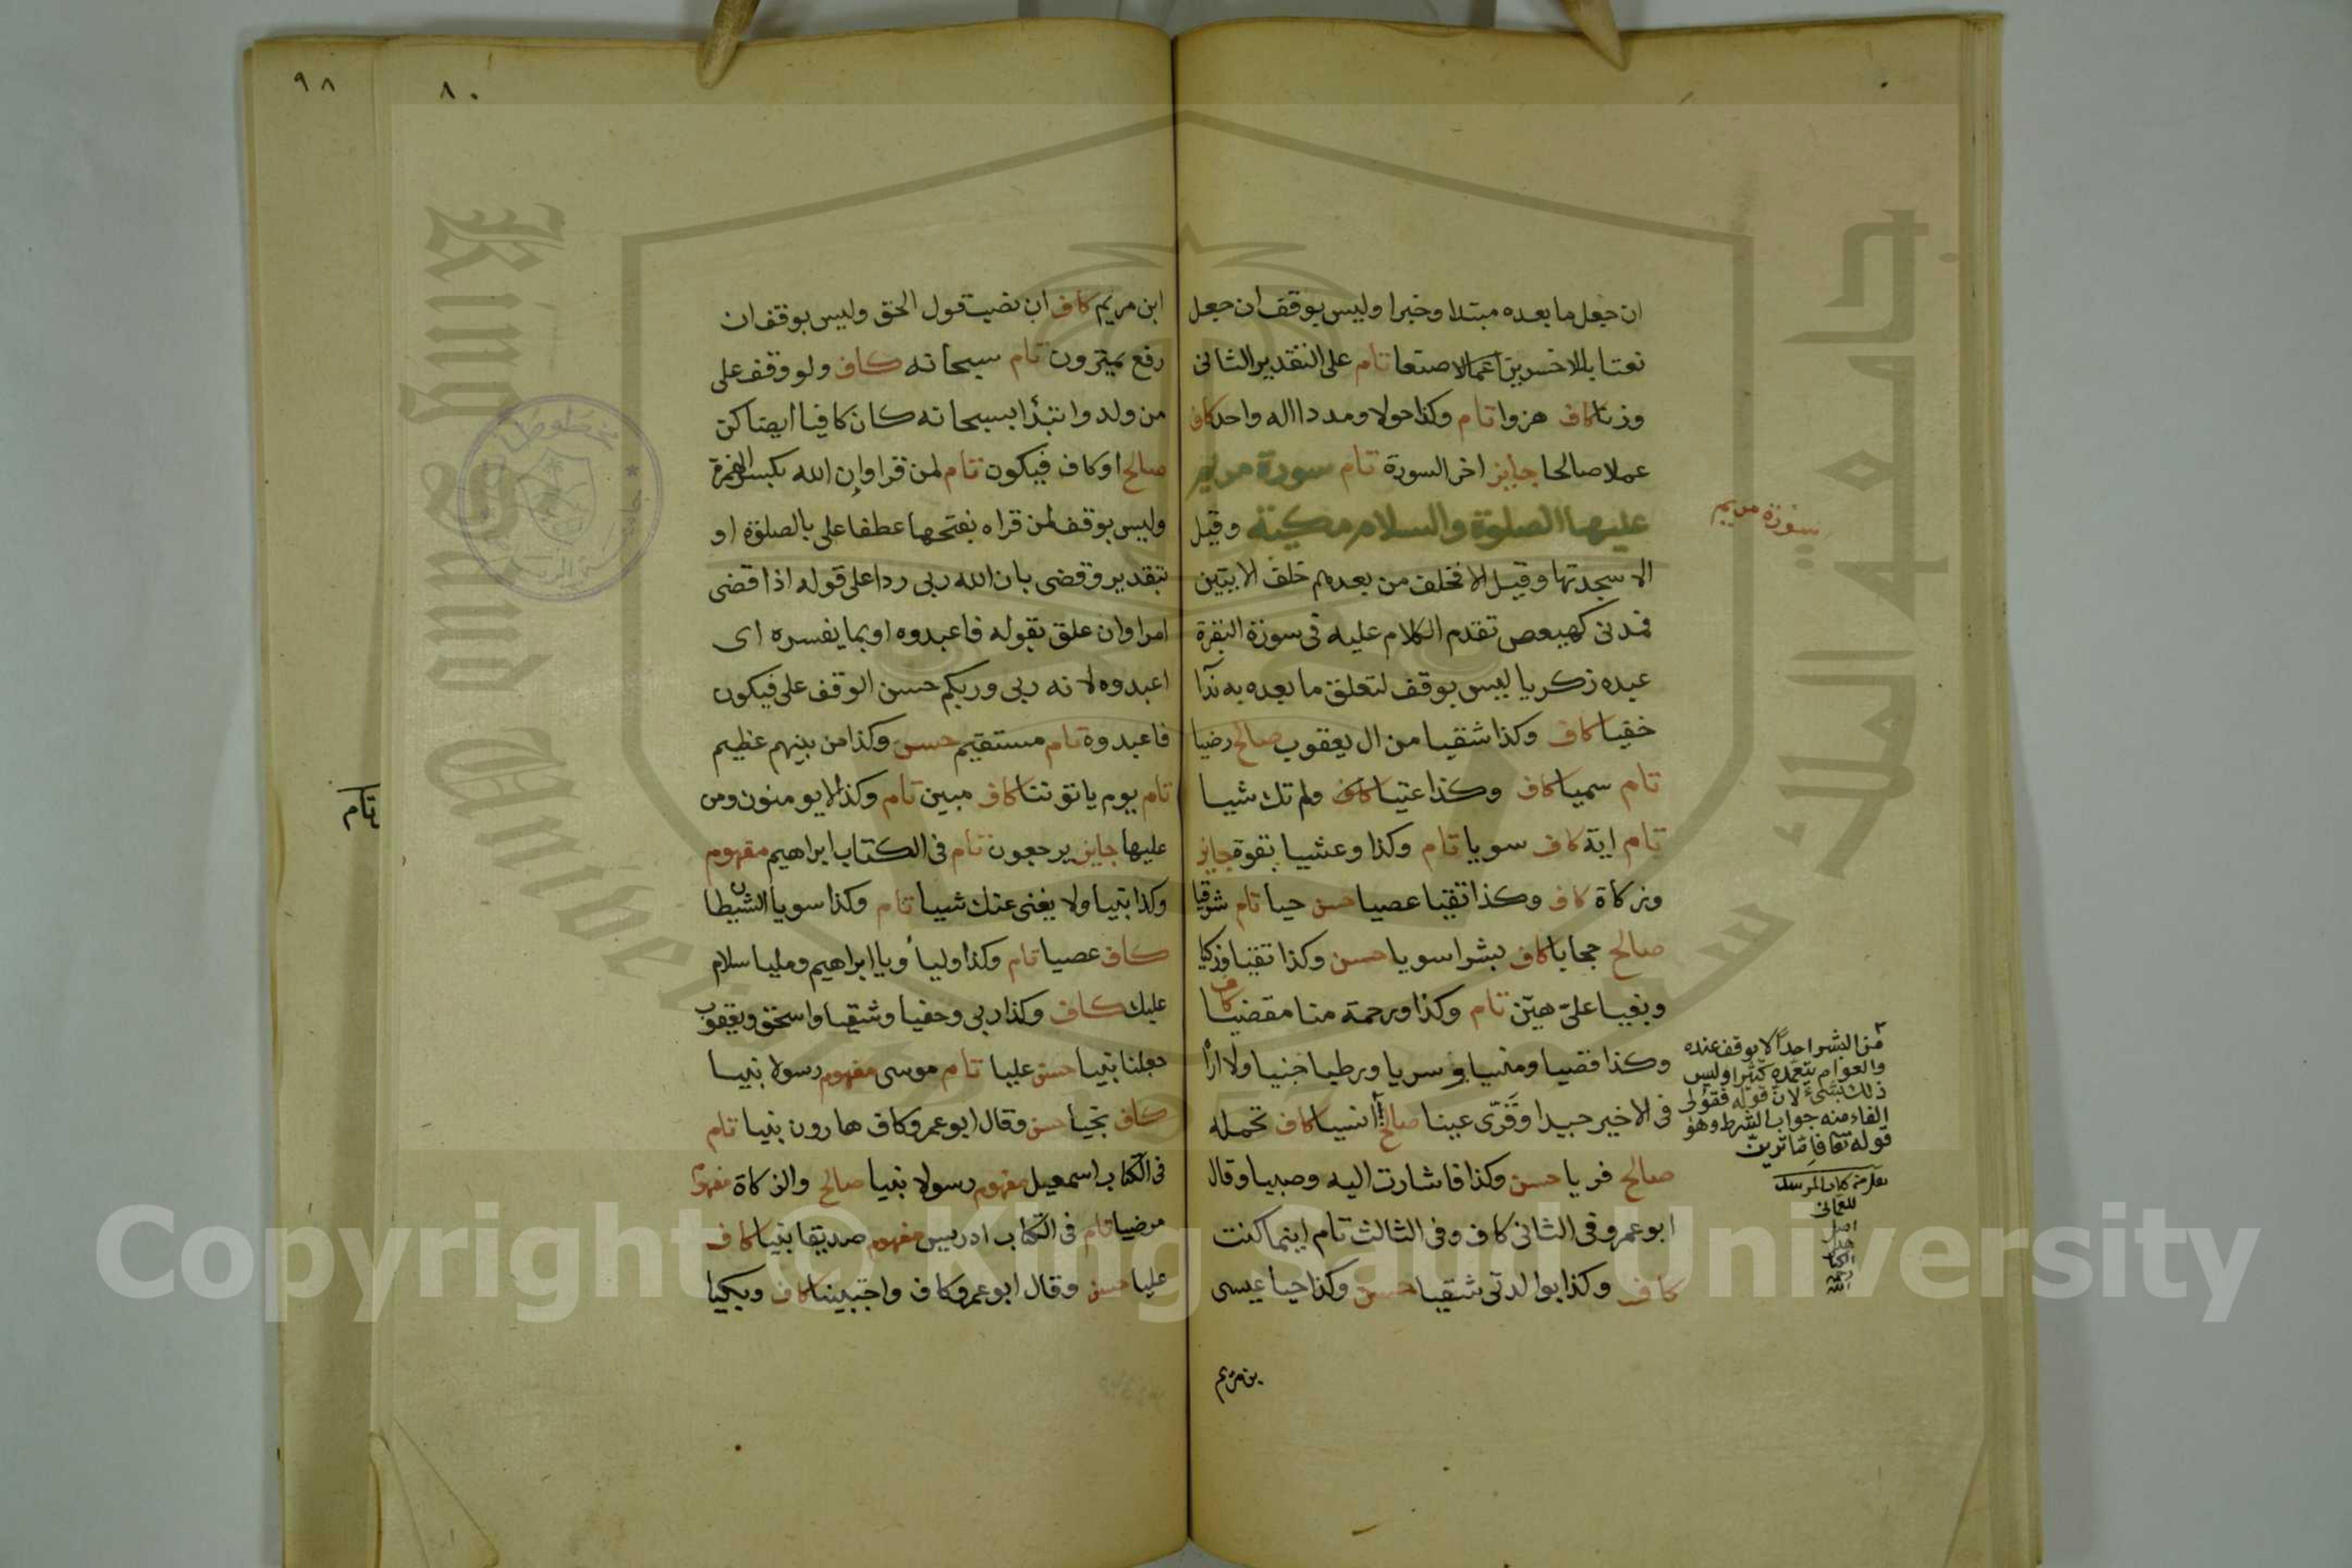 ان جعل ما بعده مبتدا وخبرا وليس بوقف ان جعل
نعتا بالاخسرين اعمالا صنعا تام على التقدير الثاني
وزنا كاف هزوا تام وكذا حولا ومددا اله واحد كاف
عملا صالحا جايز اخر السورة تام سورة مريم
عليها الصلوة والسلام مكية وقيل
الا سجدتها وقيل الا فخلف من بعدهم خلف الايتين
فمدني كهيعص تقدم الكلام عليه في سورة البقرة
عبده زكريا ليس بوقف لتعلق ما بعده به ندآ
خفيا كاف وكذا شقيا من ال يعقوب صالح رضيا
تام سميا كاف وكذا عتيا كاف ولم تك شيا
تام اية كاف سويا تام وكذا وعشيا بقوة جايز
وزكاة كاف وكذا تقيا عصيا حسن حيا تام شرقيا
صالح حجابا كاف بشرا سويا حسن وكذا تقيا وزكيا
وبغيا علىّ هيّن تام وكذا ورحمة منا مقضيا كاف
وكذا قصيا ومنسيا وسريا ورطبا جنيا ولا ارا
في الاخير جيدا وقرّى عينا صالح انسيا كاف تحمله
صالح فريا حسن وكذا فاشارت اليه وصبيا وقال
ابو عمرو في الثاني كاف وفي الثالث تام اينما كنت
كاف وكذا بوالدتي شقيا حسن وكذا حيا عيسى
بن مريم
سورة مريم
من البشر احدا لا يوقف عنده
والعوام يتعمده كثيرا وليس
ذلك بشىء لان قوله فقولي
الفاء منه جواب الشرط وهو
قوله تعا فاما ترين
للعماني
رحمه
الله
٩٨
٨٠
ابن مريم كاف ان نصبت قول الحق وليس بوقف ان
رفع يمترون تام سبحانه كاف ولو وقف على
من ولد وابتدأ بسبحانه كان كافيا ايضا كن
صالح او كاف فيكون تام لمن قرا وإن الله بكسر الهمزة
وليس بوقف لمن قراه بفتحها عطفا على بالصلوة او
بتقدير وقضى بان الله ربي ردا على قوله اذا قضى
امرا وان علق بقوله فاعبدوه او بما يفسره اى
اعبدوه لانه ربي وربكم حسن الوقف على فيكون
فاعبدوه تام مستقيم حسن وكذا من بينهم عظيم
تام يوم ياتوننا كاف مبين تام وكذا لا يومنون ومن
عليها جايز يرجعون تام في الكتاب ابراهيم مفهوم
وكذا نبيا ولا يغنى عنك شيا تام وكذا سويا الشيطان
كاف عصيا تام وكذا وليا ويا ابراهيم ومليا سلام
عليك كاف وكذا ربي وحفيا وشقيا واسحق ويعقوب
جعلنا نبيا حسن عليا تام موسى مفهوم رسولا نبيا
كاف نجيا حسن وقال ابو عمرو كاف هارون نبيا تام
في الكتاب اسمعيل مفهوم رسولا نبيا صالح والزكاة مفهوم
مرضيا تام في الكتاب ادريس مفهوم صديقا نبيا كاف
عليا حسن وقال ابو عمرو كاف واجتبينا كاف وبكيا
تام
King Saud University
جامعة الملك سعود
1957
Copyright © King Saud University